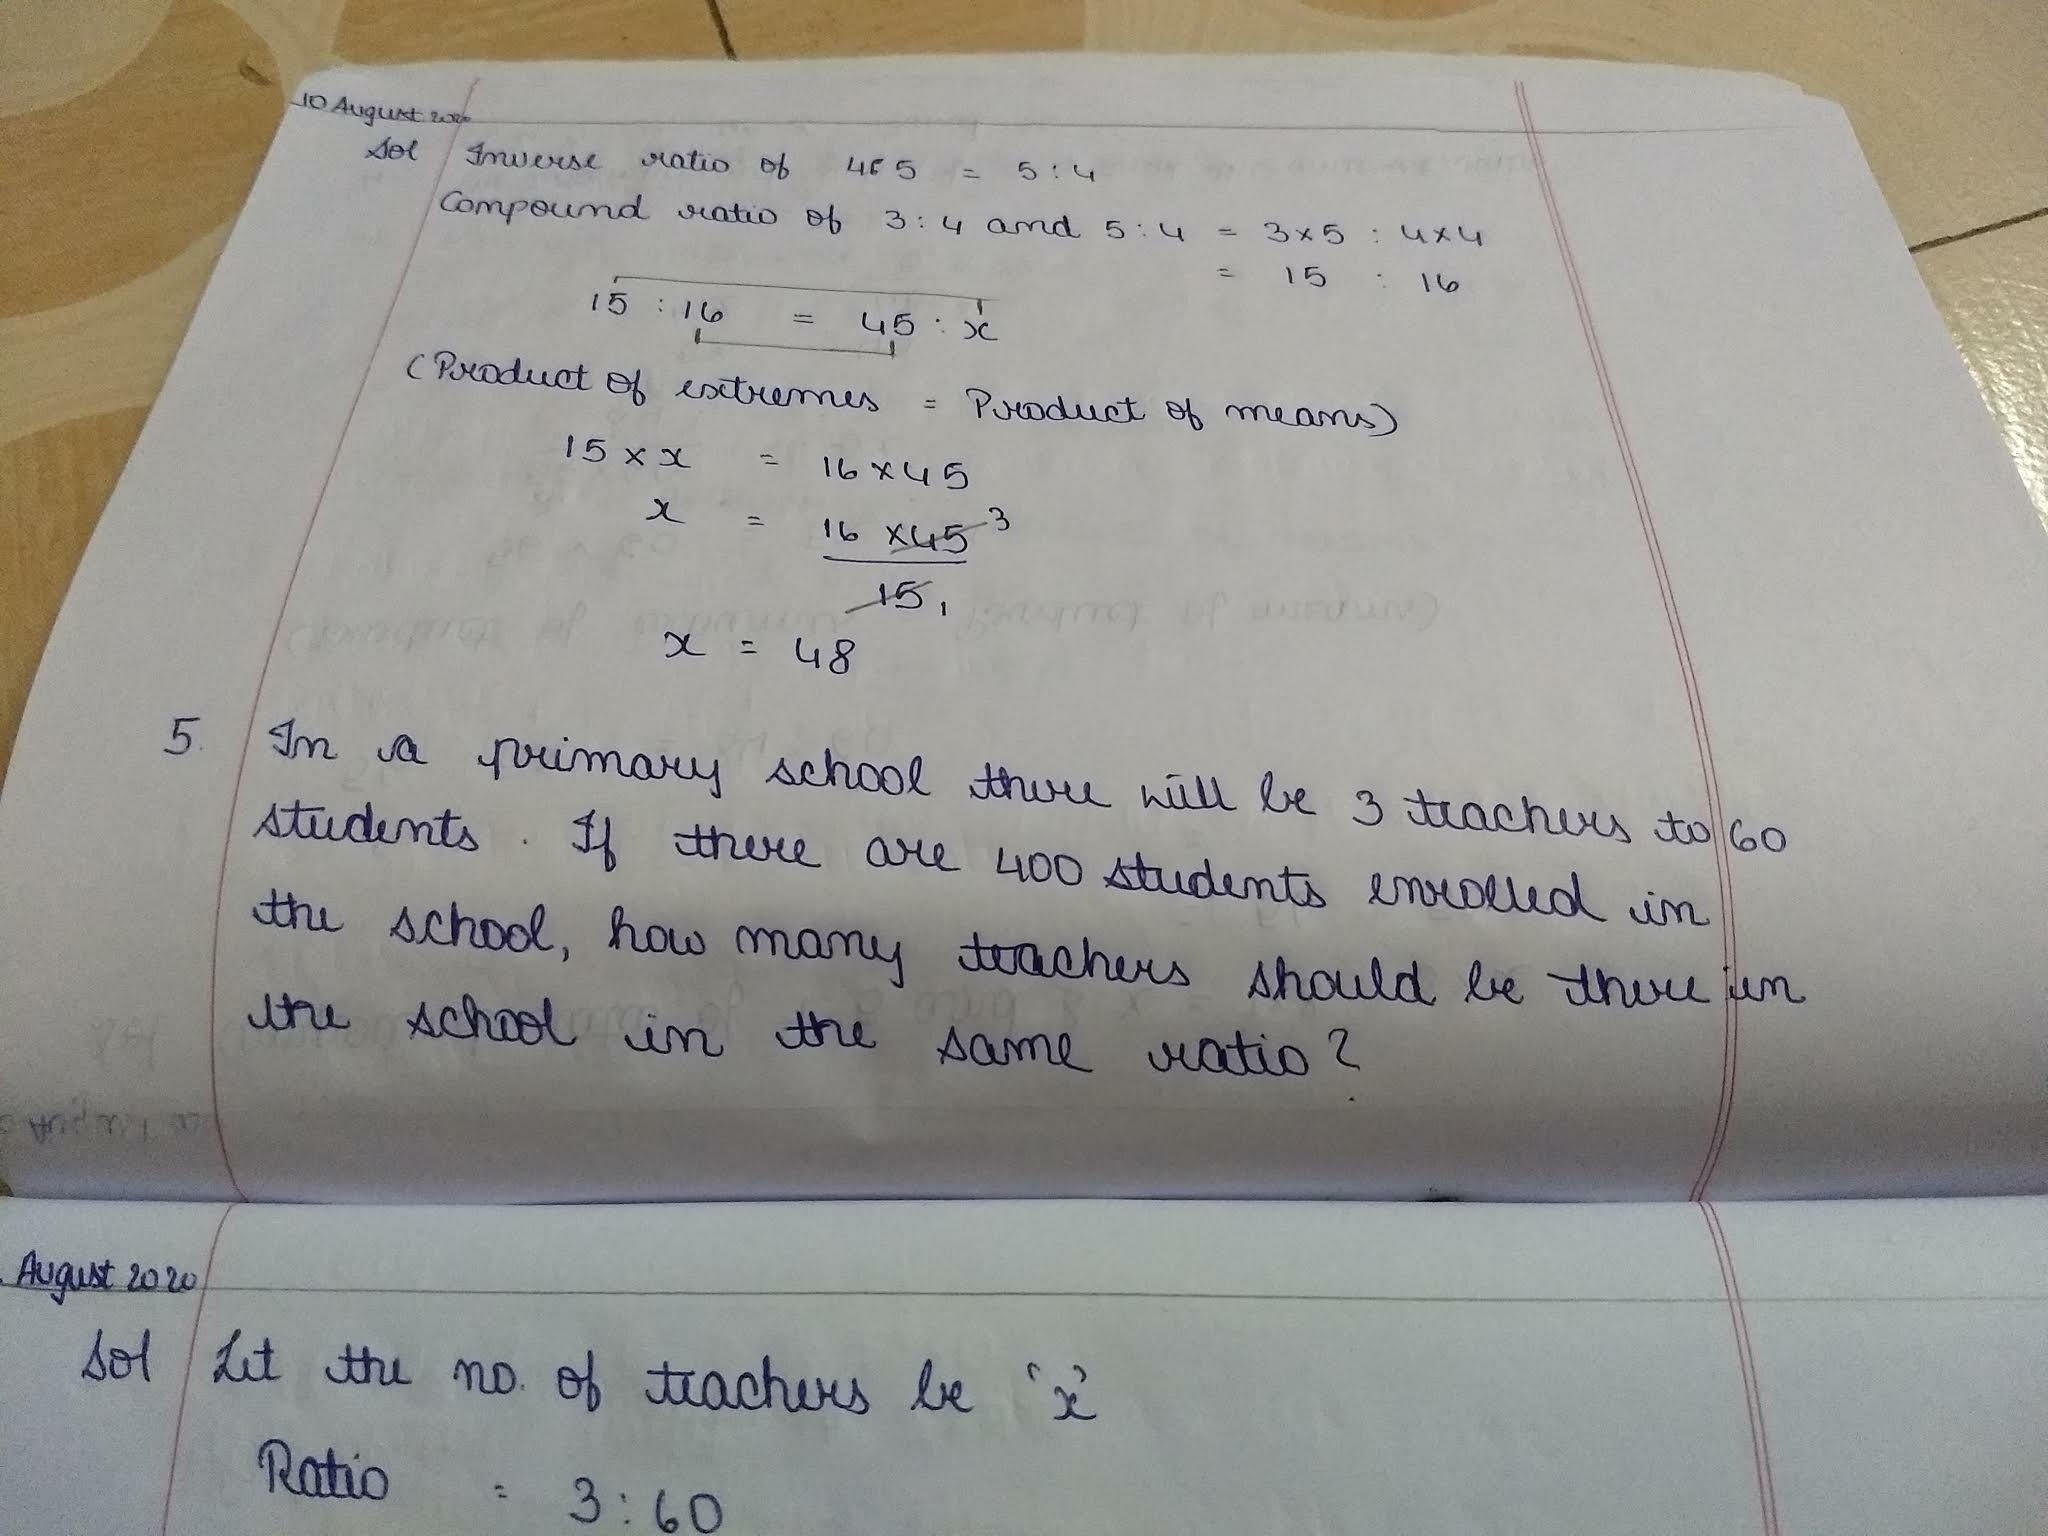 10 August 2020
Sol Inverse ratio of 4:5 = 5:4
Compound ratio of 3:4 and 5:4 = 3×5 : 4×4
= 15 : 16
15 : 16 = 45 : x
(Product of extremes = Product of means)
15 × x = 16 × 45
x = 16 × 45 3
15 1
x = 48
5. In a primary school there will be 3 teachers to 60
students. If there are 400 students enrolled in
the school, how many teachers should be there in
the school in the same ratio?
August 2020
Sol Let the no. of teachers be 'x'
Ratio = 3:60